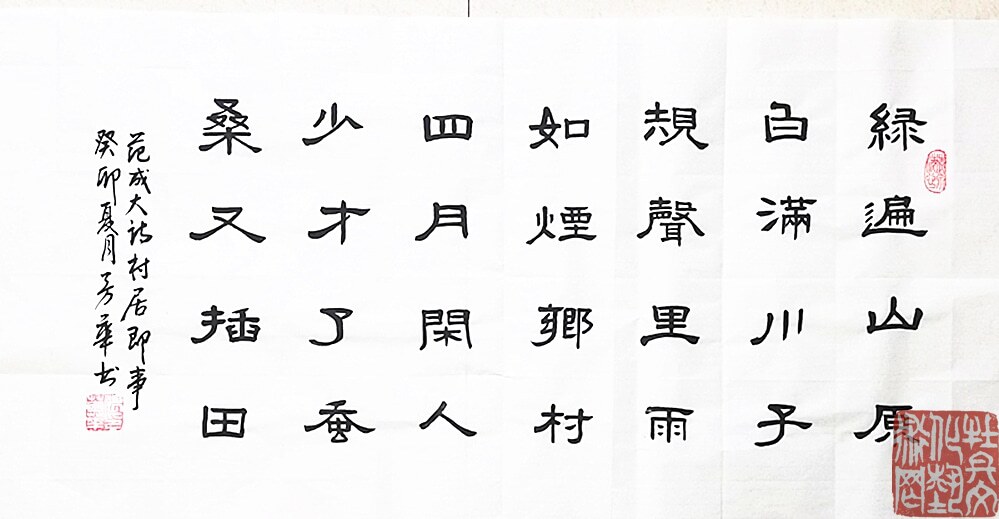 緑遍山原
白滿川子
規聲里雨
如煙鄉村
四月閑人
少才了蚕
桑又插田
范成大诗村居即事
癸卯夏月芳華书